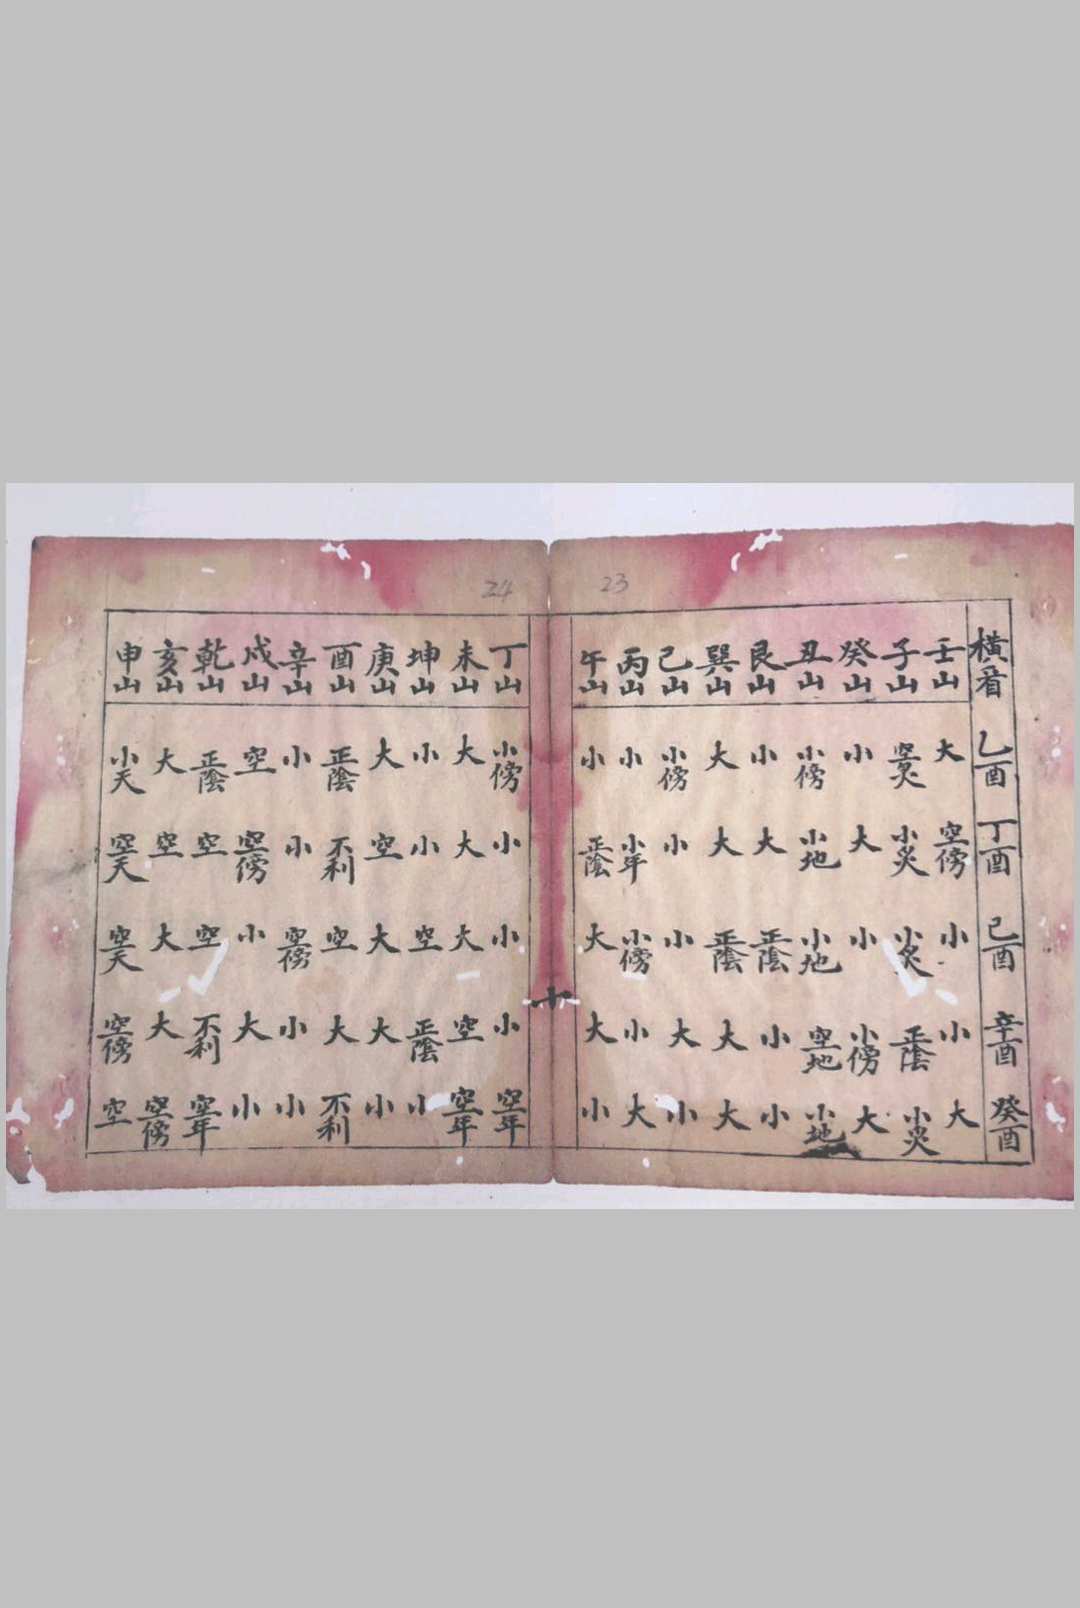 23
橫看 壬山 子山 癸山 丑山 艮山 巽山 己山 丙山 午山
乙酉 大 空炎 小 小傍 小 大 小傍 小 小
丁酉 空傍 小炎 大 小地 大 大 小 小年 正陰
己酉 小 小炎 小 小地 正陰 正陰 小 小傍 大
辛酉 小 正陰 小傍 空地 小 大 大 小 大
癸酉 大 小炎 大 小地 小 大 小 大 小
十
24
丁山 未山 坤山 庚山 酉山 辛山 戍山 乾山 亥山 申山
小傍 大 小 大 正陰 小 空 正陰 大 小天
小 大 小 空 不利 小 空傍 空 空 空天
小 大 空 大 空 空傍 小 空 大 空天
小 空 正陰 大 大 小 大 不利 大 空傍
空年 空年 小 小 不利 小 小 空年 空傍 空